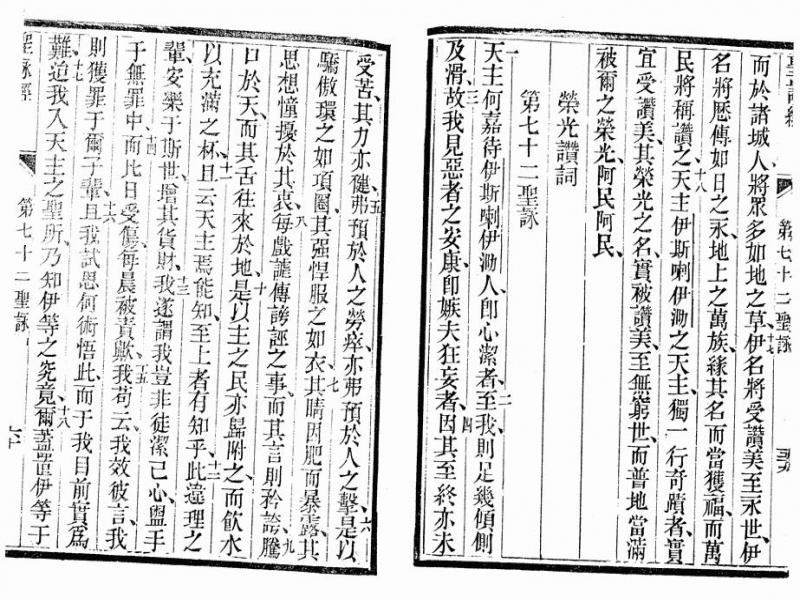 聖詠經 第七十二聖詠
而於諸城人將眾多如地之草、十七伊名將受讚美至永世、伊
名將歷傳如日之永、地上之萬族、緣其名而當獲福、而萬
民將稱讚之、十八天主伊斯喇伊泐之天主、獨一行奇蹟者、實
宜受讚美、其榮光之名、實被讚美、至無窮世、而普地當滿
被爾之榮光、阿民阿民、
榮光讚詞
第七十二聖詠
一天主何嘉待伊斯喇伊泐人、卽心潔者、二至我則足幾傾側
及滑、三故我見惡者之安康、卽嫉夫狂妄者、四因其至終亦未
受苦、其力亦健、五弗預於人之勞瘁、亦弗預於人之擊、六是以
驕傲環之如項圈、其強悍服之如衣、七其睛因肥而暴露、其
思想憧擾於其衷、八每戲謔傳謗誣之事、而其言則矜誇、九騰
口於天、而其舌往來於地、十是以主之民亦歸附之、而飲水
以充滿之杯、十一且云、天主焉能知、至上者有知乎、十二此違理之
輩、安樂于斯世、增其貨財、十三我遂謂我豈非徒潔己心、盥手
于無罪中、十四而比日受傷、每晨被責歟、十五我苟云、我效彼言、我
則獲罪于爾子輩、十六且我試思何術悟此、而于我目前實為
難、十七迨我入天主之聖所、乃知伊等之究竟、十八爾蓋置伊等于
聖詠經 第七十二聖詠